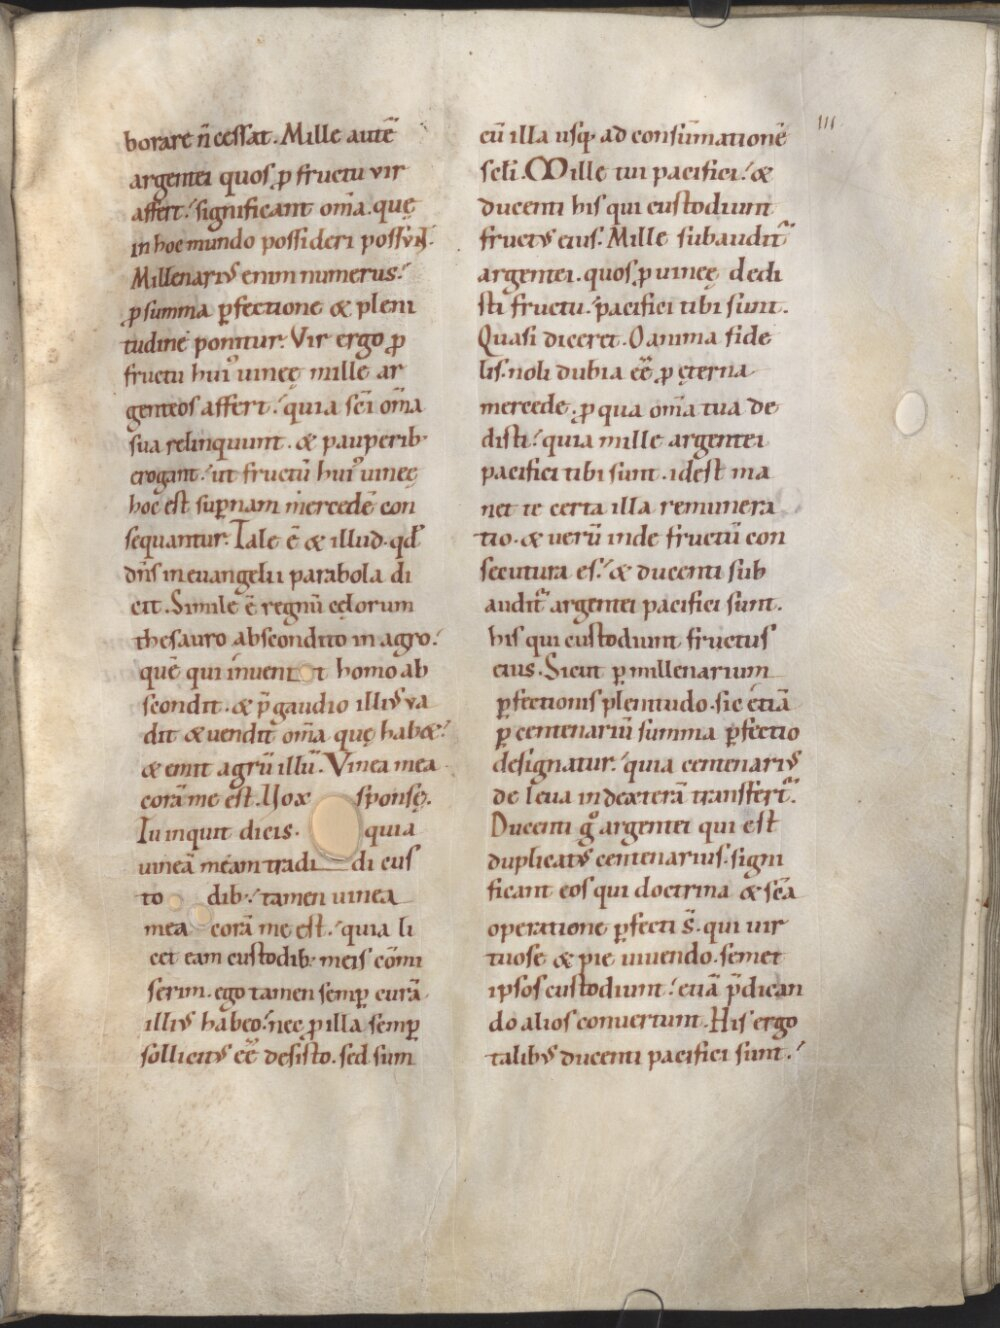 borare n̄ cessat. Mille autē
argentei quos ꝓ fructu vir
affert. significant om̄a. quę
in hoc mundo possideri possunt.
Millenariꝰ enim numerus.
ꝓ summa ꝑfectione & pleni
tudine ponitur. Vir ergo ꝓ
fructu huiꝰ uineę mille ar
genteos affert. quia sc̄i om̄a
sua relinquunt. & pauperib;
erogant. ut fructū huiꝰ uineę
hoc est suꝑnam mercedē con
sequantur. Tale ē & illud. qd̄
dn̄s in euangelii parabola di
cit. Simile ē regnū cęlorum
thesauro abscondito in agro.
quē qui inuenit homo ab
scondit. & p̄ gaudio illiꝰ va
dit & uendit om̄a quę hab&.
& emit agrū illū. Vinea mea
corā me est. Uox sponsę.
Tu inquit dicis. quia
uineā meam tradidi cus
todib; tamen uinea
mea corā me est. quia li
cet eam custodib; meis cōmi
serim. ego tamen semꝑ curā
illiꝰ habeo. nec ꝓ illa semꝑ
sollicitꝰ eē̄ desisto. sed sum
III
cū illa usq; ad consūmationē
sc̄li. Mille tui pacifici. &
ducenti his qui custodiunt
fructꝰ eius. Mille subaudit̄
argentei. quos ꝓ uineę dedi
sti fructu. pacifici tibi sunt.
Quasi diceret. O anima fide
lis. noli dubia eē̄ ꝓ ęterna
mercede. ꝓ qua om̄a tua de
disti. quia mille argentei
pacifici tibi sunt. id est ma
net te certa illa remunera
tio. & uerū inde fructū con
secutura es. & ducenti sub
audit̄ argentei pacifici sunt.
his qui custodiunt fructus
eius. Sicut ꝑ millenarium
ꝑfectionis plenitudo. sic etiā
ꝑ centenariū summa ꝑfectio
designatur. quia centenariꝰ
de leua in dexterā transfert̄.
Ducenti gͦ argentei qui est
duplicatꝰ centenarius. signi
ficant eos qui doctrina & sc̄a
operatione ꝑfecti s̄. qui uir
tuose & pie uiuendo. semet
ipsos custodiunt. etiā p̄dican
do alios conuertunt. His ergo
talibꝰ ducenti pacifici sunt.